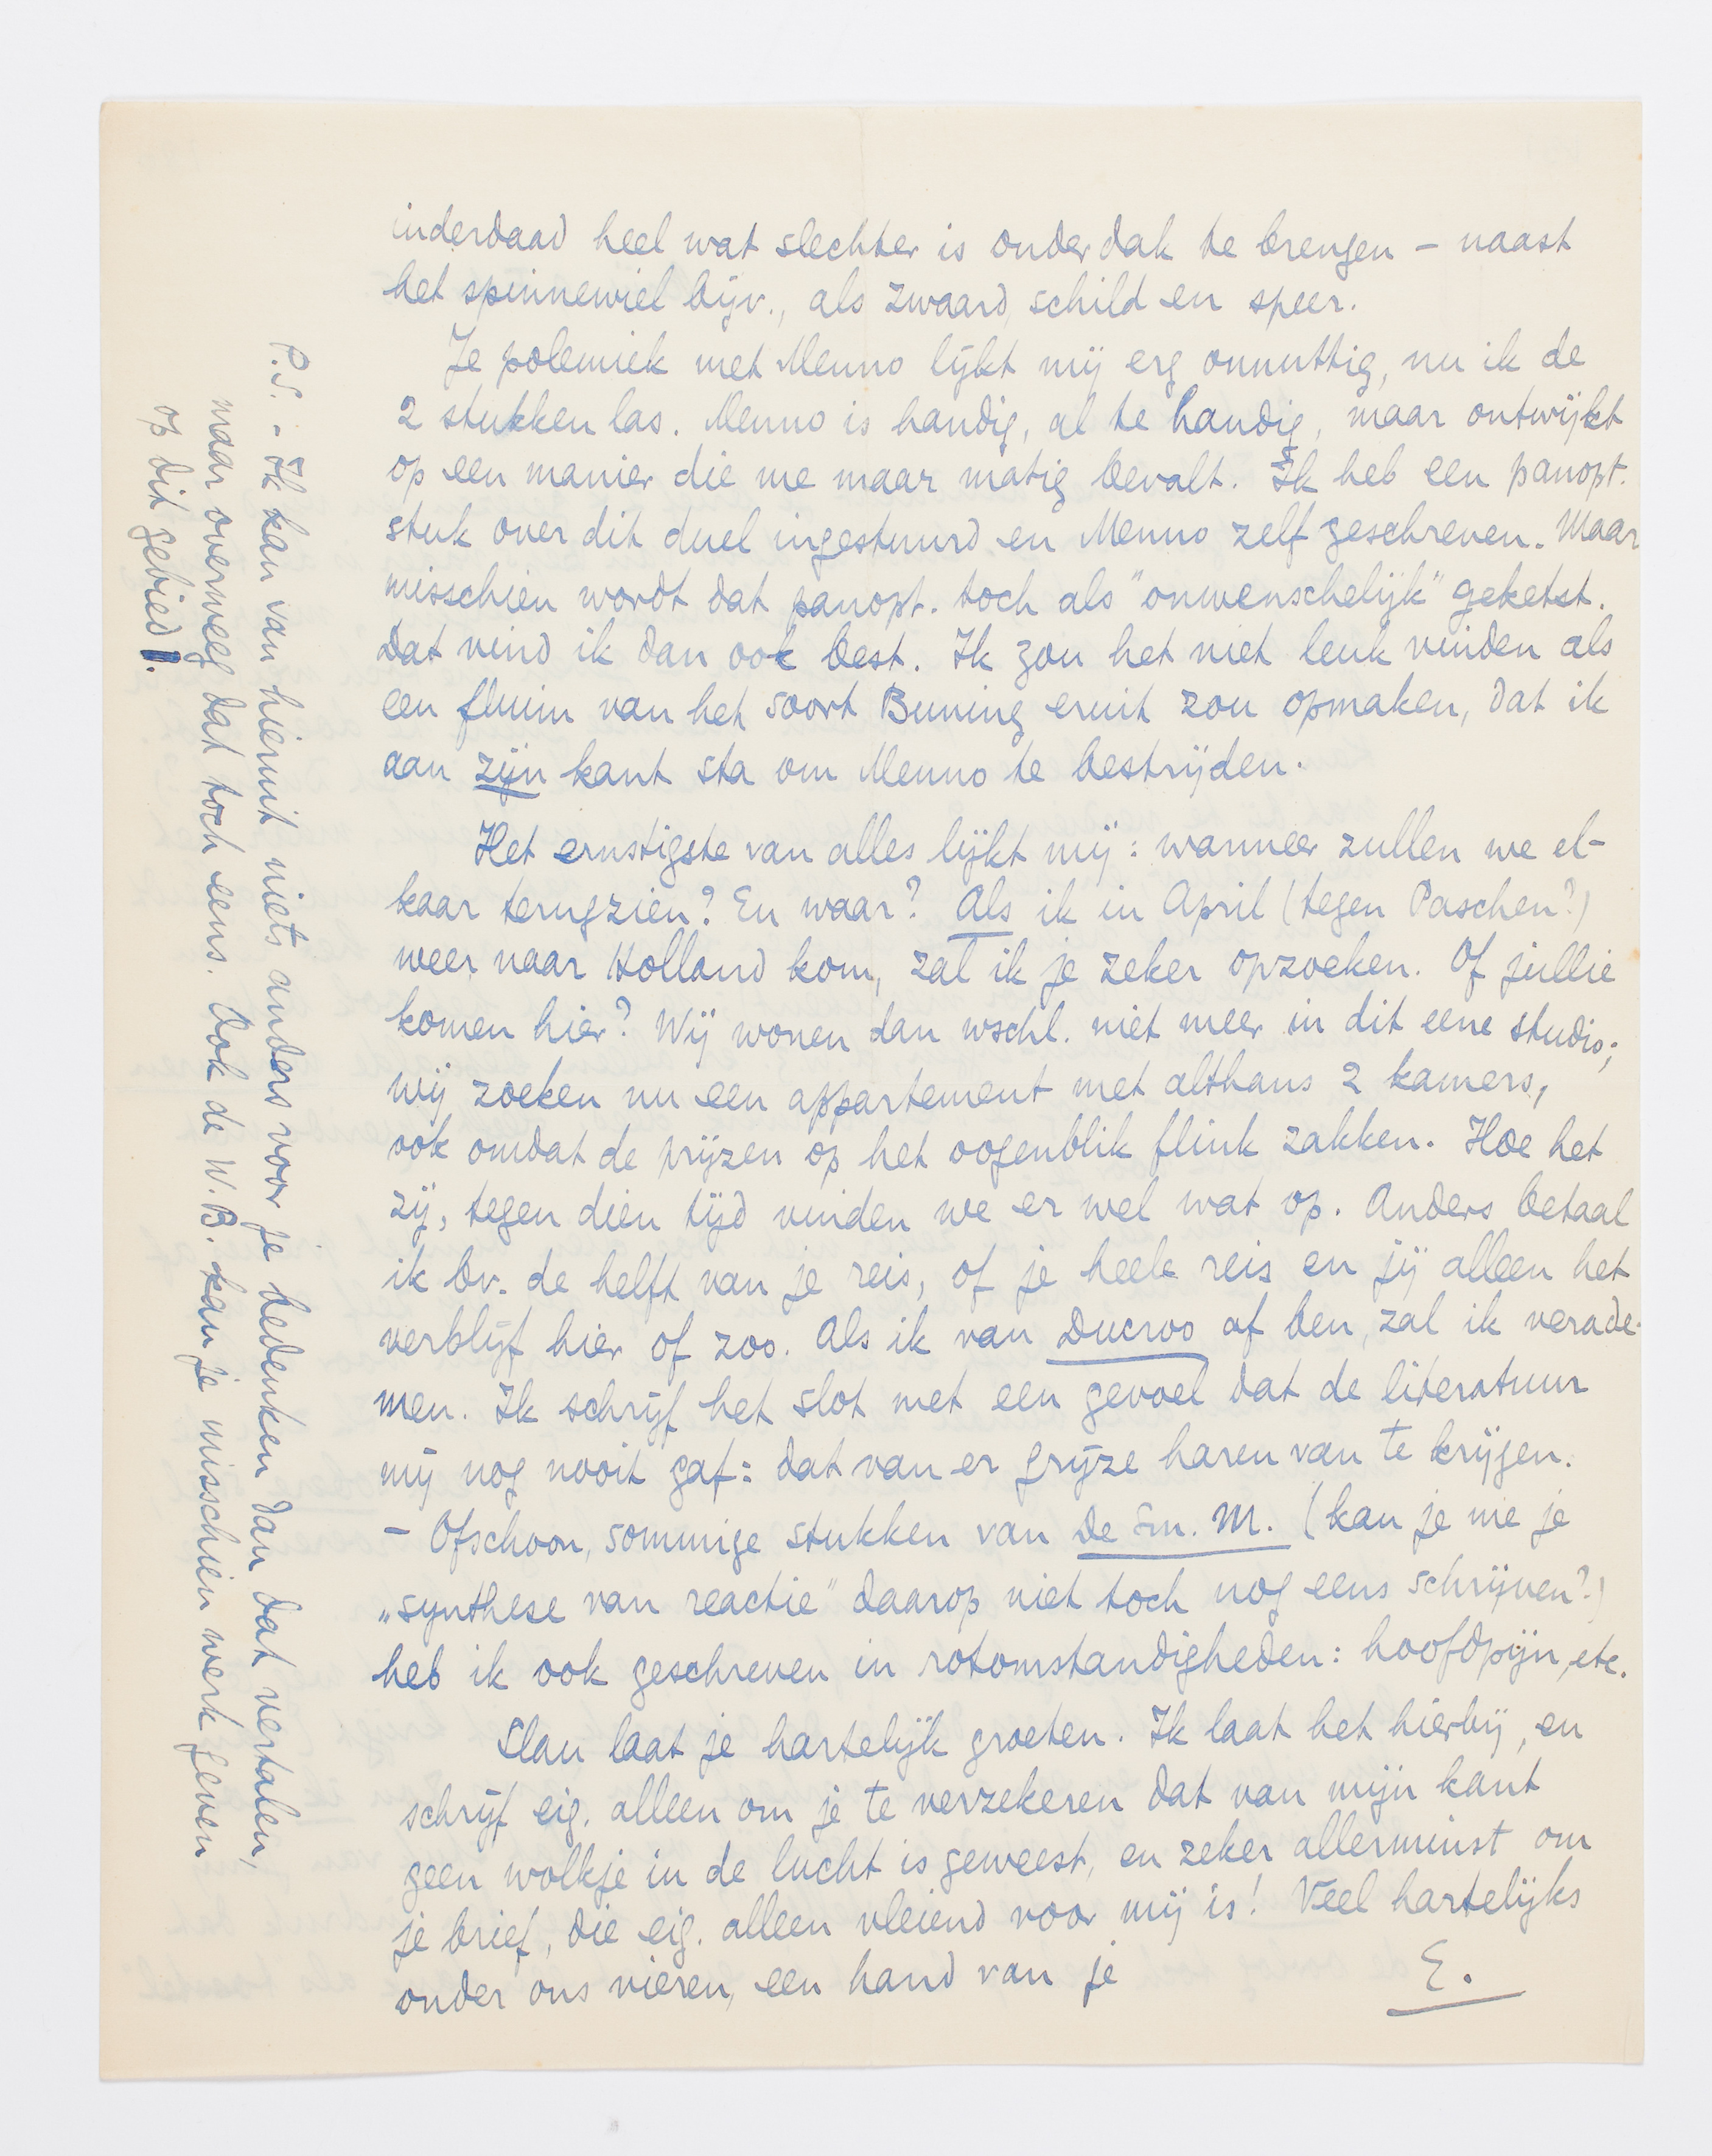 inderdaad heel wat slechter is onder dak te brengen – naast
het spinnewiel bijv., als zwaard, schild en speer.
Je polemiek met Menno lijkt mij erg onnuttig, nu ik de
2 stukken las. Menno is handig, al te handig, maar ontwijkt
op een manier die me maar matig bevalt. Ik heb een panopt.
stuk over dit duel ingestuurd en Menno zelf geschreven. Maar
misschien wordt dat panopt. toch als "onwenschelijk" geketst.
Dat vind ik dan ook best. Ik zou het niet leuk vinden als
een fluim van het soort Buning eruit zou opmaken, dat ik
aan zijn kant sta om Menno te bestrijden.
Het ernstigste van alles lijkt mij: wanneer zullen we el-
kaar terugzien? En waar? Als ik in April (tegen Paschen?)
weer naar Holland kom, zal ik je zeker opzoeken. Of jullie
komen hier? Wij wonen dan wschl. niet meer in dit eene studio;
wij zoeken nu een appartement met althans 2 kamers,
ook omdat de prijzen op het oogenblik flink zakken. Hoe het
zij, tegen dien tijd vinden we er wel wat op. Anders betaal
ik bv. de helft van je reis, of je heele reis en jij alleen het
verblijf hier of zoo. Als ik van Ducroo af ben, zal ik verade-
men. Ik schrijf het slot met een gevoel dat de literatuur
mij nog nooit gaf: dat van er grijze haren van te krijgen.
– Ofschoon, sommige stukken van De Sm. M. (kan je me je
„synthese van reactie" daarop niet toch nog eens schrijven?)
heb ik ook geschreven in rotomstandigheden: hoofdpijn, etc.
Slau laat je hartelijk groeten. Ik laat het hierbij, en
schrijf eig. alleen om je te verzekeren dat van mijn kant
geen wolkje in de lucht is geweest, en zeker allerminst om
je brief, die eig. alleen vleiend voor mij is! Veel hartelijks
onder ons vieren, een hand van je
E.
P.S. – Ik kan van hieruit niets anders voor je bedenken dan dat vertalen,
maar overweeg dat toch eens. Ook de W.B. kan je misschien werk geven
op dit gebied.